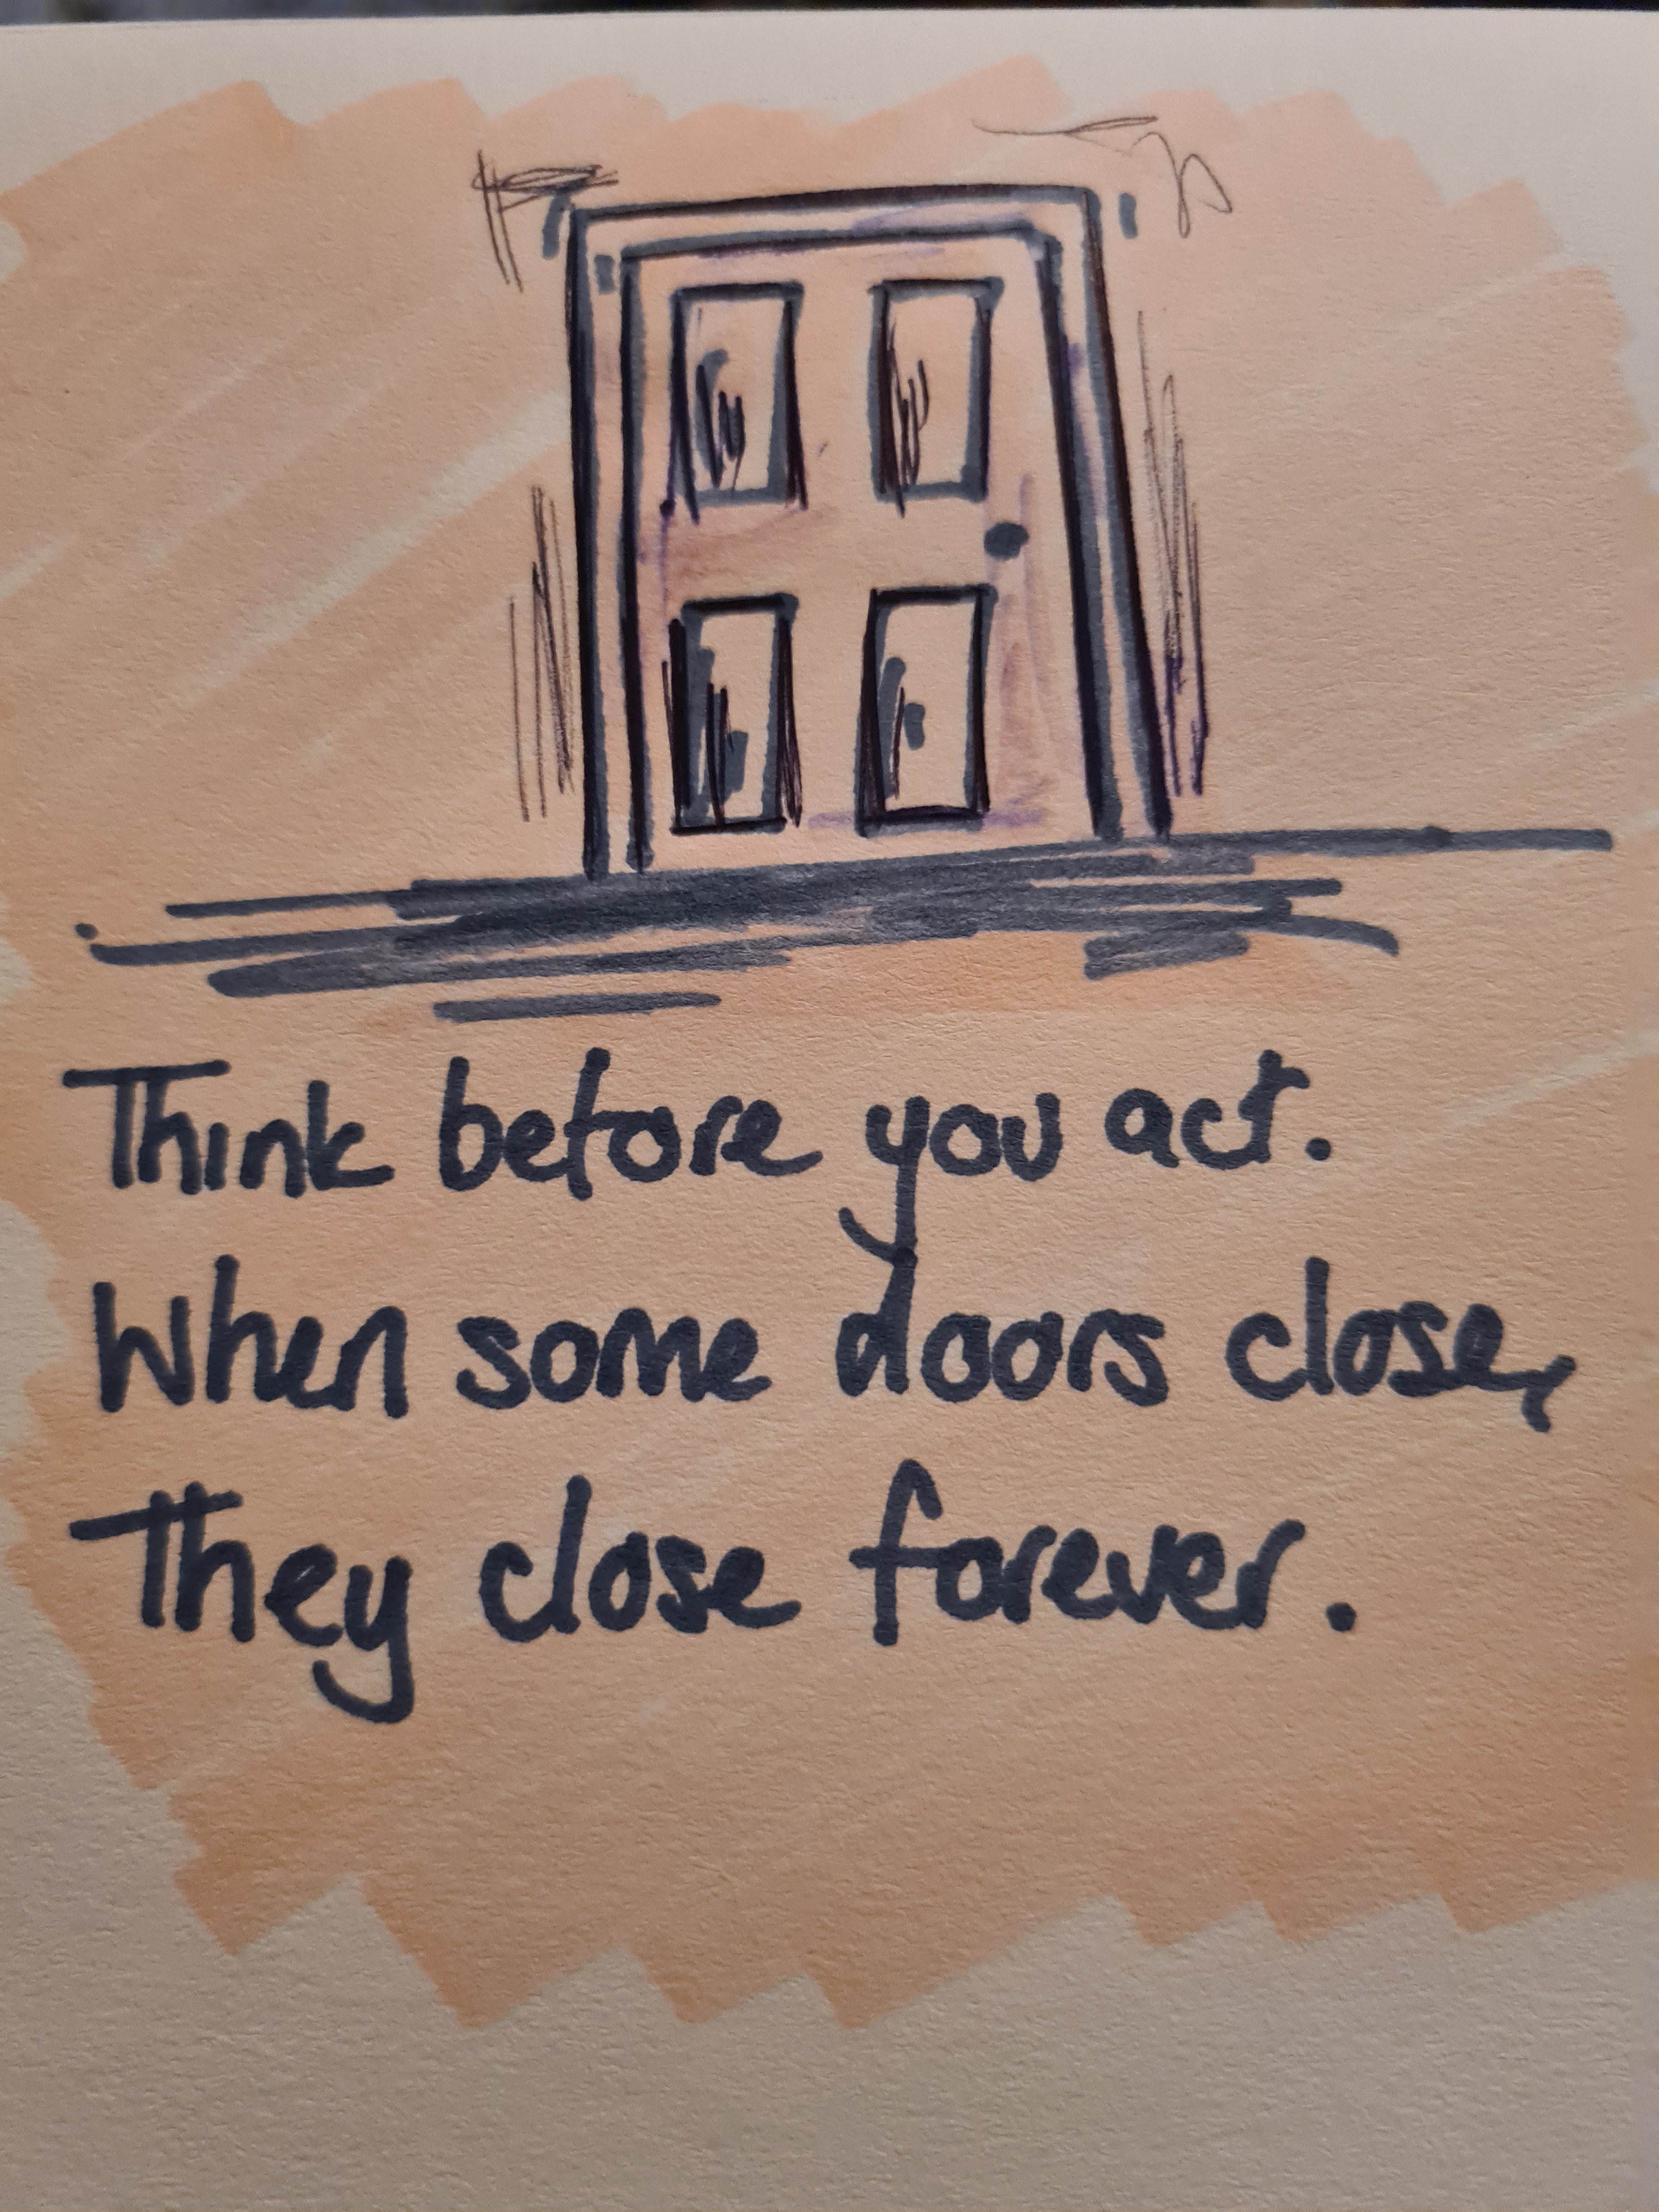 Think before you act.
When some doors close,
They close forever.